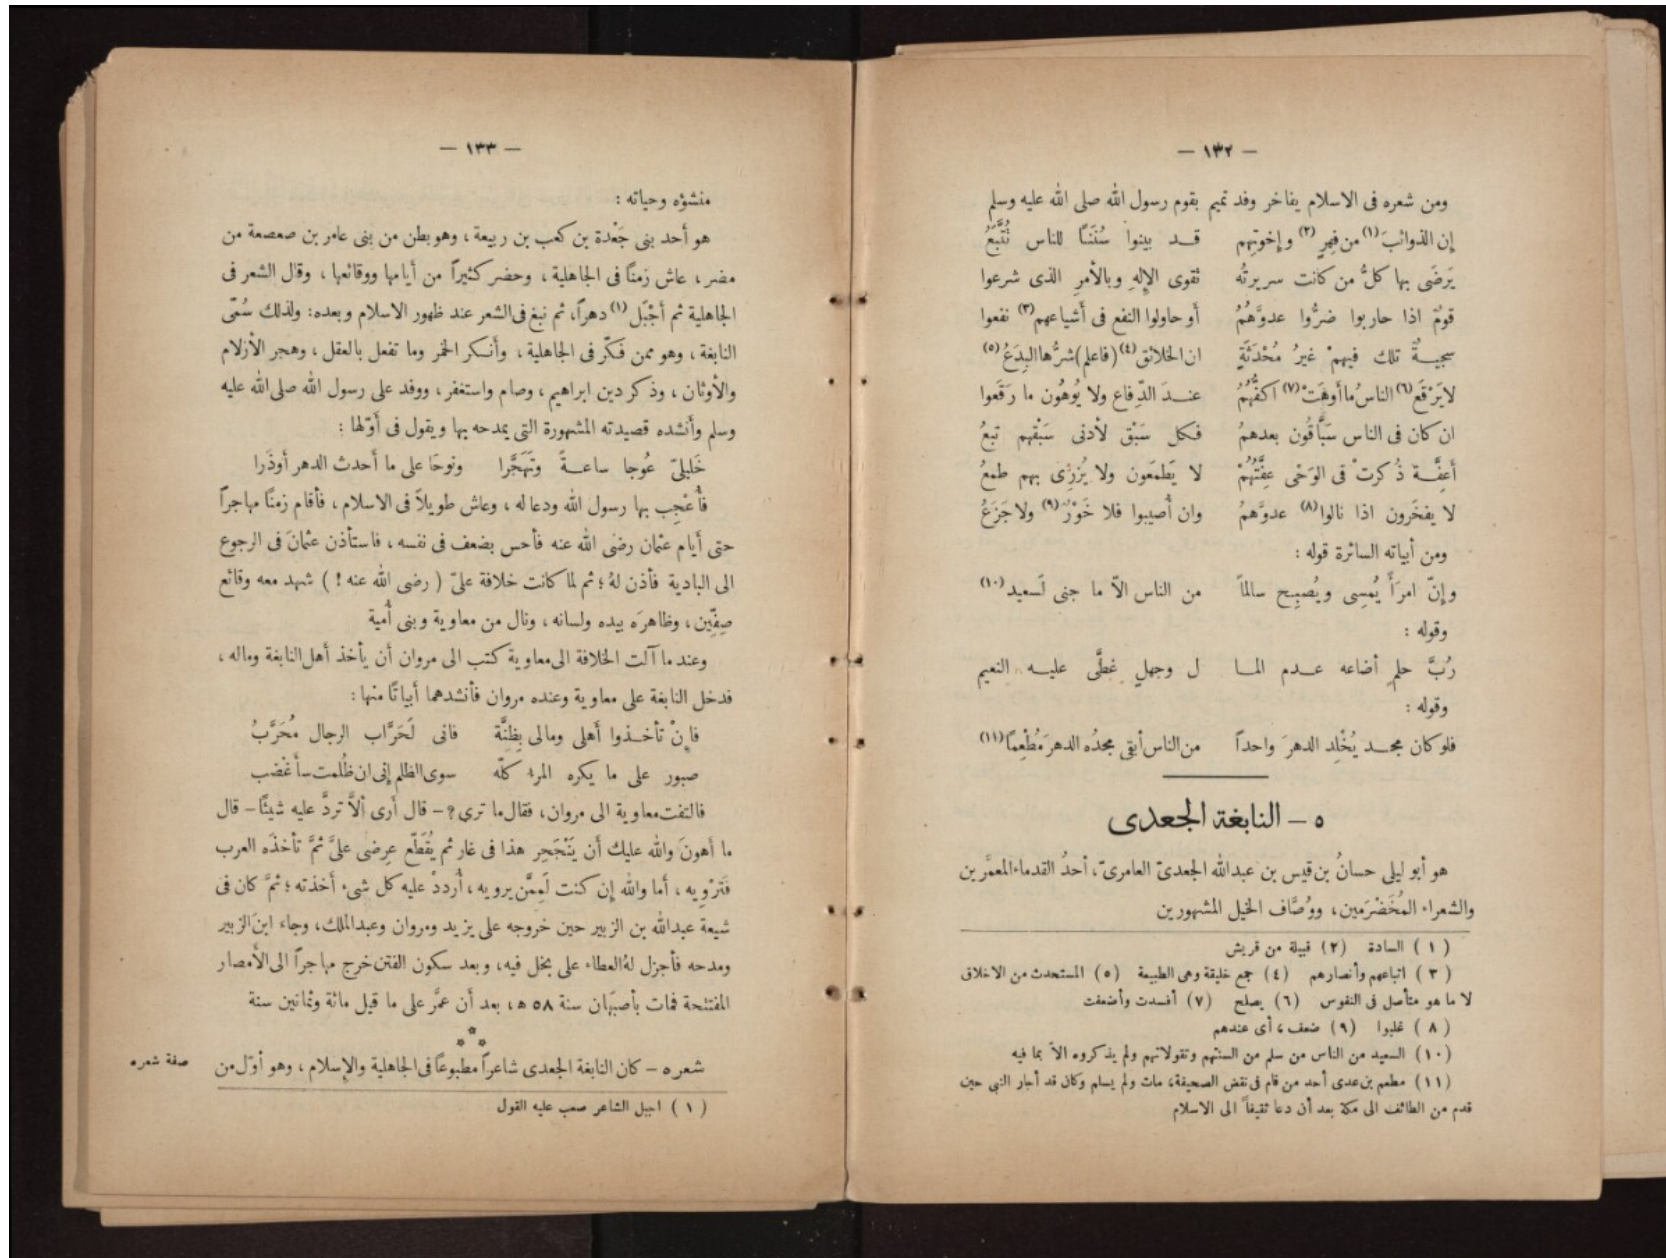 — ١٣٢ —
ومن شعره فى الاسلام يفاخر وفد تميم بقوم رسول الله صلى الله عليه وسلم
إن الذوائبَ (١) من فِهرٍ (٢) وإخوتِهم قد بينوا سُنَنًا للناس تُتَّبَعُ
يَرضَى بها كلُّ من كانت سريرتُه تقوى الإلهِ وبالأمرِ الذى شرعوا
قومٌ اذا حاربوا ضرُّوا عدوَّهمُ أو حاولوا النفع فى أشياعهم (٣) نفعوا
سجيةٌ تلك فيهمْ غيرُ مُحْدَثَةٍ ان الخلائق (٤) (فاعلم) شرُّها البِدَعُ (٥)
لايَرْقَع (٦) الناسُ ما أَوهَتْ (٧) اكفُّهُمُ عندَ الدِّفاع ولا يُوهُون ما رَقَعوا
ان كان فى الناس سَبَّاقُون بعدهمُ فكل سَبْق لأدنى سَبْقهم تبعُ
أعِفَّة ذُكرتْ فى الوَحْى عِفَّتُهُمْ لا يَطمَعون ولا يُزرِى بهم طمعُ
لا يفخَرون اذا نالوا (٨) عدوَّهمُ وان أُصيبوا فلا خَوْرٌ (٩) ولا جَزَعُ
ومن أبياته السائرة قوله :
وإنّ امرَأً يُمسِى ويُصبِح سالماً من الناس الاّ ما جنى لَسعيد (١٠)
وقوله :
رُبَّ حلمٍ أضاعه عدم الما ل وجهلٍ غطَّى عليه النعيم
وقوله :
فلو كان مجد يُخْلِد الدهرَ واحداً من الناس أبقى مجدُه الدهرَ مُطْعِمًا (١١)
٥ – النابغة الجعدى
هو أبو ليلى حسانُ بن قيس بن عبدالله الجعدىّ العامرىّ، أحدُ القدماء المعمَّرين
والشعراء المُخَضْرَمين، ووُصَّاف الخيل المشهورين
(١) السادة (٢) قبيلة من قريش
(٣) اتباعهم وأنصارهم (٤) جمع خليقة وهى الطبيعة (٥) المستحدث من الاخلاق
لا ما هو متأصل فى النفوس (٦) يصلح (٧) أفسدت وأضعفت
(٨) غلبوا (٩) ضعف، أى عندهم
(١٠) السعيد من الناس من سلم من السنتهم وتقولاتهم ولم يذكروه الاّ بما فيه
(١١) مطعم بن عدى أحد من قام فى نقض الصحيفة، مات ولم يسلم وكان قد أجار النبى حين
قدم من الطائف الى مكة بعد أن دعا ثقيفاً الى الاسلام
— ١٣٣ —
منشؤه وحياته :
هو أحد بنى جَعْدة بن كعب بن ربيعة، وهو بطن من بنى عامر بن صعصعة من
مضر، عاش زمنًا فى الجاهلية، وحضر كثيراً من أيامها ووقائعها، وقال الشعر فى
الجاهلية ثم أجْبَل (١) دهراً، ثم نبغ فى الشعر عند ظهور الاسلام وبعده: ولذلك سُمّى
النابغة، وهو ممن فكّر فى الجاهلية، وأنكر الخمر وما تفعل بالعقل، وهجر الأزلام
والأوثان، وذكر دين ابراهيم، وصام واستغفر، ووفد على رسول الله صلى الله عليه
وسلم وأنشده قصيدته المشهورة التى يمدحه بها ويقول فى أوّلها :
خَليلىّ عُوجا ساعةً وتَهَجَّرا ونوحَا على ما أحدث الدهر أوذَرا
فأُعْجِب بها رسول الله ودعا له، وعاش طويلاً فى الاسلام، فأقام زمنًا مهاجراً
حتى أيام عثمان رضى الله عنه فأحس بضعف فى نفسه، فاستأذن عثمانَ فى الرجوع
الى البادية فأذن لهُ؛ ثم لما كانت خلافة علىّ ( رضى الله عنه ! ) شهد معه وقائع
صِفِّين، وظاهرَه بيده ولسانه، ونال من معاوية وبنى أُمية
وعند ما آلت الخلافة الى معاوية كتب الى مروان أن يأخذ أهل النابغة وماله،
فدخل النابغة على معاوية وعنده مروان فأنشدهما أبياتًا منها :
فإِنْ تأخذوا أهلى ومالى بِظِنَّة فانى لَحَرَّاب الرجال مُحَرَّبُ
صبور على ما يكره المرء كلّه سوى الظلم إنى ان ظُلمت سأغضب
فالتفت معاوية الى مروان، فقال ما ترى؟ – قال أرى ألاَّ تردَّ عليه شيئًا – قال
ما أهونَ والله عليك أن يَنْجَحِر هذا فى غار ثم يُقَطّع عِرضى علىَّ ثمَّ تأخذَه العرب
فَترْوِيه، أما والله إن كنت لَمِمَّن يرويه، أُرددْ عليه كل شىء أخذته؛ ثمَّ كان فى
شيعة عبدالله بن الزبير حين خروجه على يزيد ومروان وعبدالملك، وجاء ابنَ الزبير
ومدحه فأجزل لهُ العطاء على بخل فيه، وبعد سكون الفتن خرج مهاجراً الى الأمصار
المفتتحة فمات بأصبَهان سنة ٥٨ ه، بعد أن عمَّر على ما قيل مائة وثمانين سنة
* * *
شعره – كان النابغة الجعدى شاعراً مطبوعًا فى الجاهلية والإسلام، وهو أوّل من
صفة شعره
(١) اجبل الشاعر صعب عليه القول